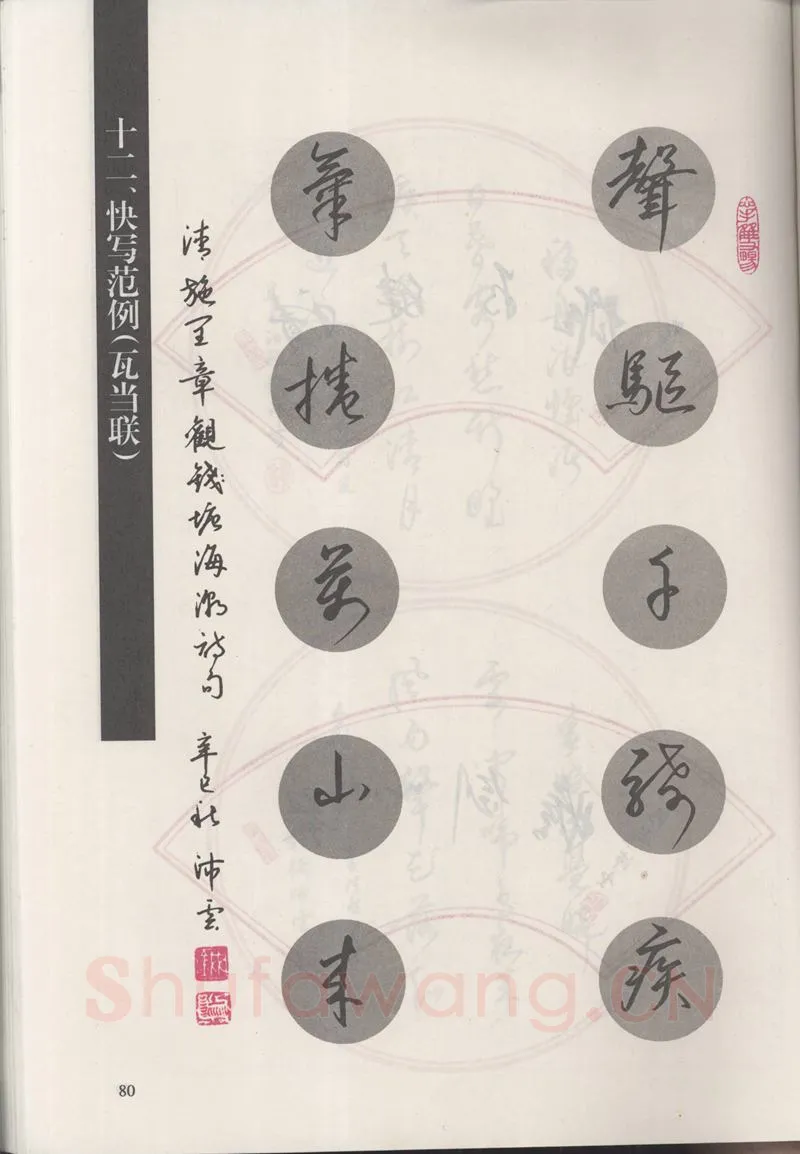 十二、快写范例(瓦当联)
聲驅千騎疾
氣捲萬山來
清施閏章觀錢塘海潮詩句 辛巳秋 沛雲
80
Shufawang.CN